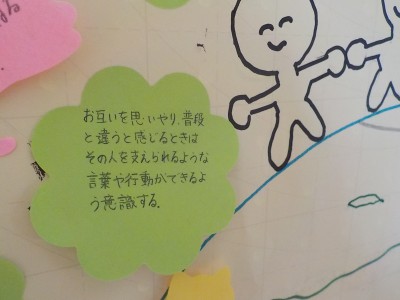 お互いを思いやり、普段
と違うと感じるときは
その人を支えられるような
言葉や行動ができるよ
う意識する。